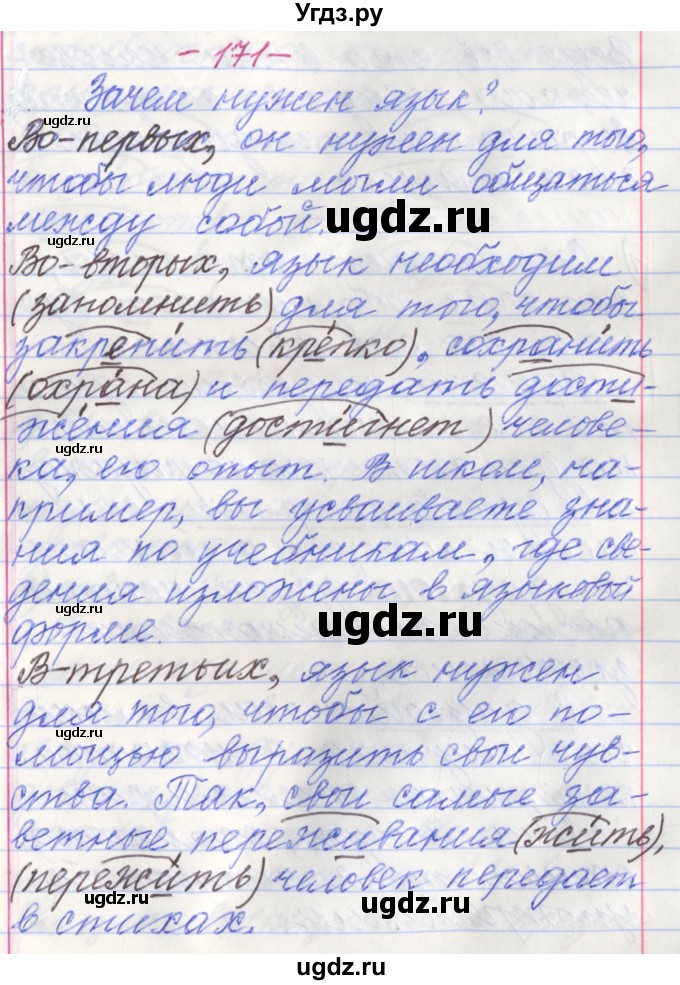 Угдз.ру
- 171 -
Зачем нужен язык?
Во-первых, он нужен для того,
чтобы люди могли общаться
между собой.
Во-вторых, язык необходим
(запомнить) для того, чтобы
закрепить (крепко), сохранить
(охрана) и передать дости-
жения (достигнет) челове-
ка, его опыт. В школе, на-
пример, вы усваиваете зна-
ния по учебникам, где све-
дения изложены в языковый
форме.
В-третьих, язык нужен
для того, чтобы с его по-
мощью выразить свои чув-
ства. Так, свои самые за-
ветные переживания (жить),
(пережить) человек передает
в стихах.
ugdz.ru
ugdz.ru
ugdz.ru
ugdz.ru
ugdz.ru
ugdz.ru
ugdz.ru
ugdz.ru
ugdz.ru
ugdz.ru
ugdz.ru